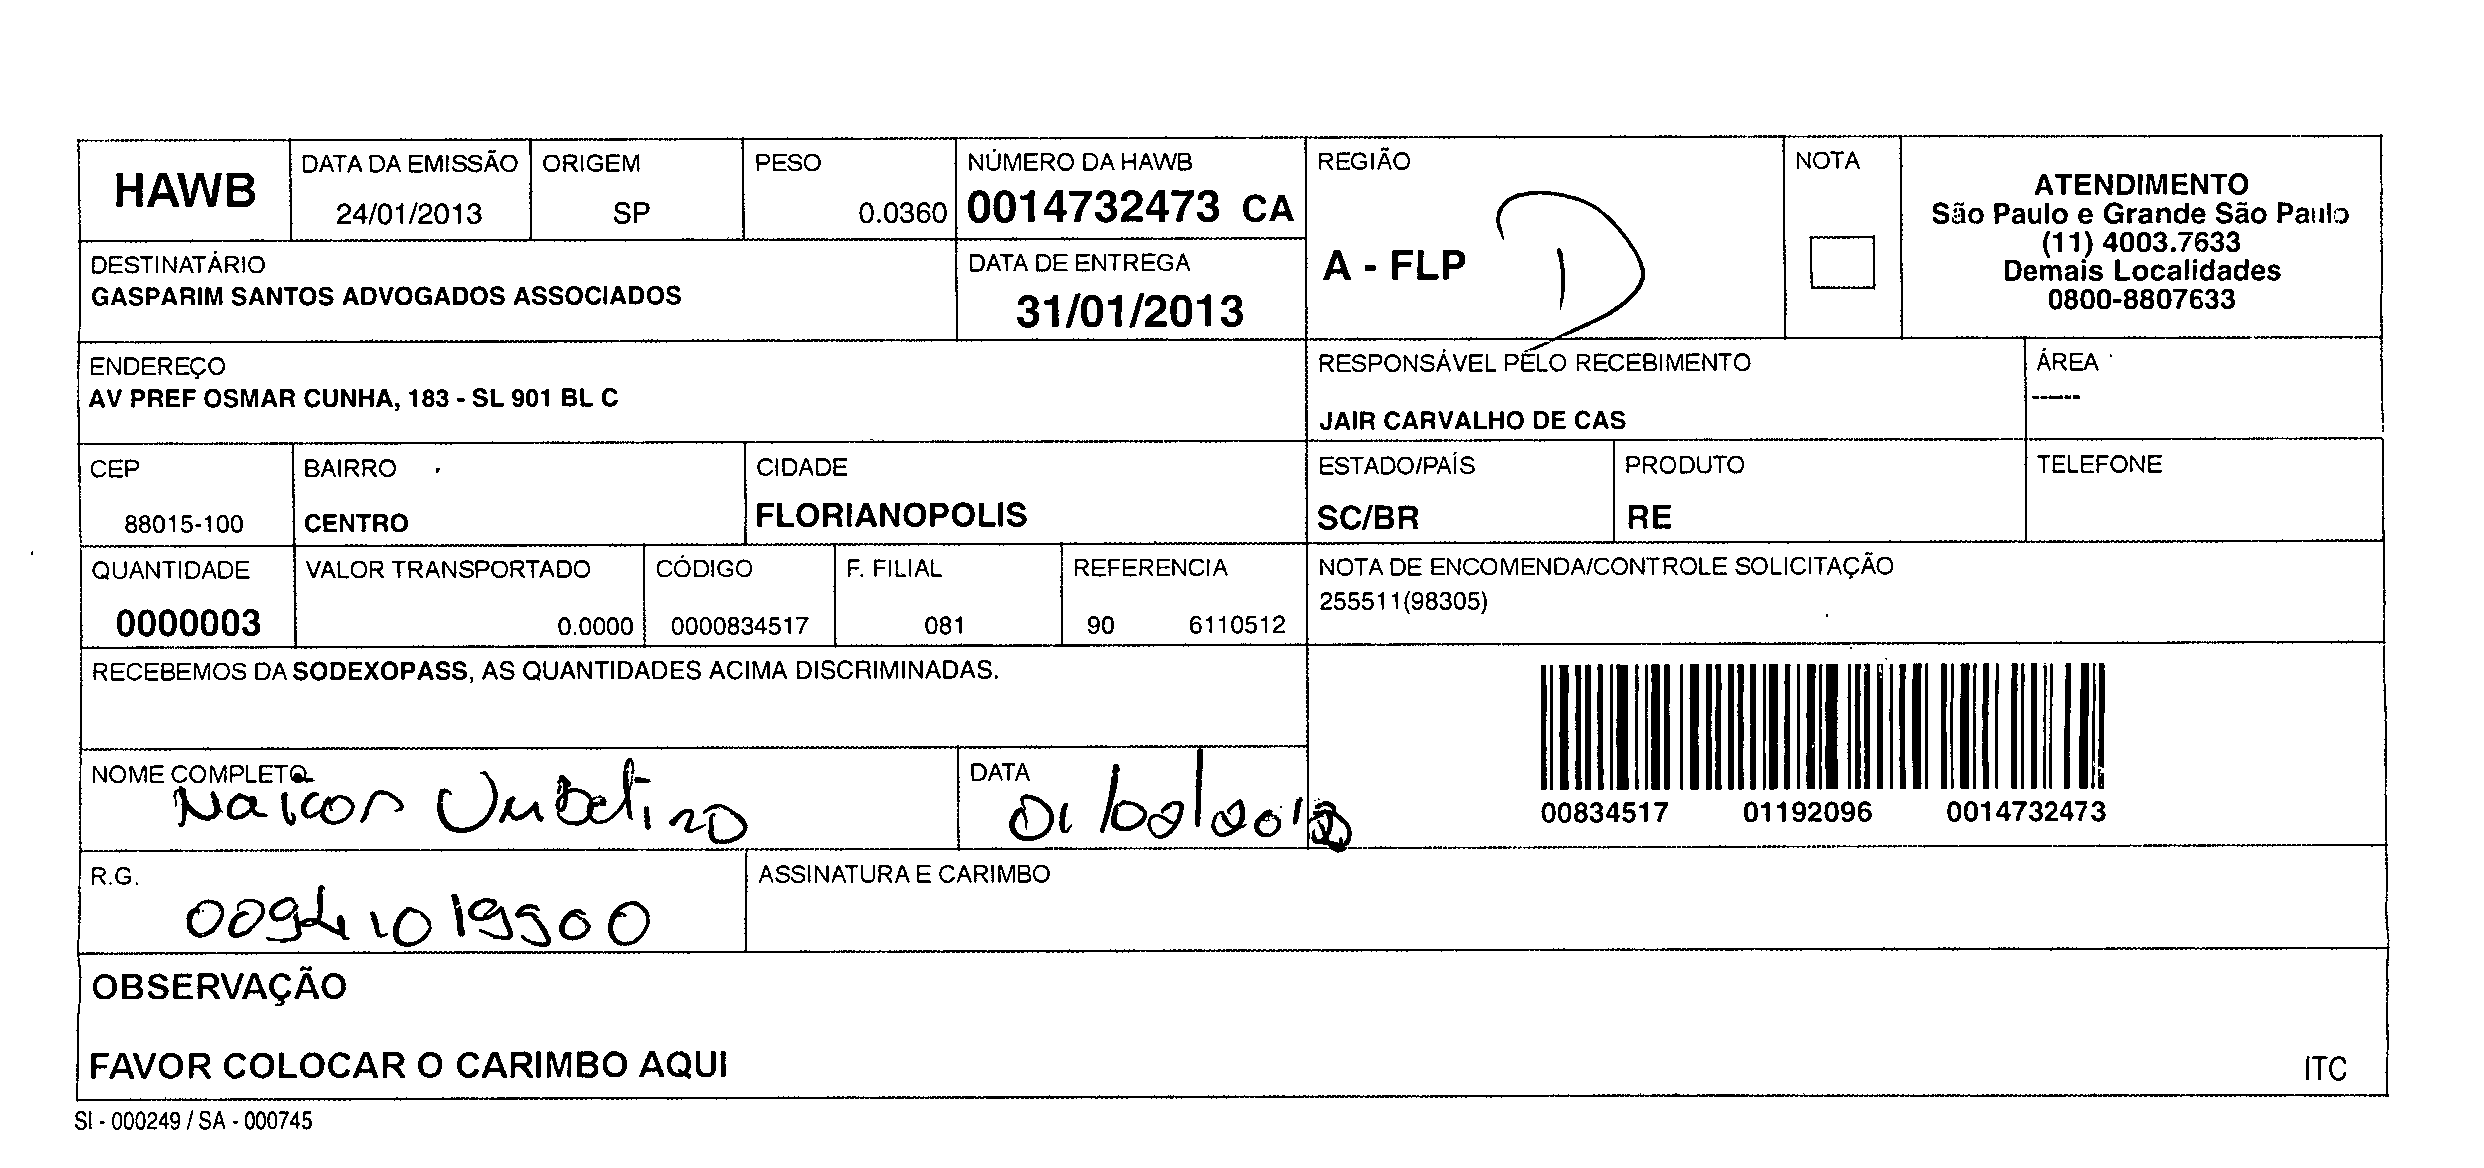 HAWB
DATA DA EMISSÃO
24/01/2013
ORIGEM
SP
PESO
0.0360
NÚMERO DA HAWB
0014732473 CA
REGIÃO
A - FLP
D
NOTA
ATENDIMENTO
São Paulo e Grande São Paulo
(11) 4003.7633
Demais Localidades
0800-8807633
DESTINATÁRIO
GASPARIM SANTOS ADVOGADOS ASSOCIADOS
DATA DE ENTREGA
31/01/2013
ENDEREÇO
AV PREF OSMAR CUNHA, 183 - SL 901 BL C
RESPONSÁVEL PELO RECEBIMENTO
JAIR CARVALHO DE CAS
ÁREA
------
CEP
88015-100
BAIRRO
CENTRO
CIDADE
FLORIANOPOLIS
ESTADO/PAÍS
SC/BR
PRODUTO
RE
TELEFONE
QUANTIDADE
0000003
VALOR TRANSPORTADO
0.0000
CÓDIGO
0000834517
F. FILIAL
081
REFERENCIA
90 6110512
NOTA DE ENCOMENDA/CONTROLE SOLICITAÇÃO
255511(98305)
RECEBEMOS DA SODEXOPASS, AS QUANTIDADES ACIMA DISCRIMINADAS.
00834517 01192096 0014732473
NOME COMPLETO
DATA
R.G.
ASSINATURA E CARIMBO
OBSERVAÇÃO
FAVOR COLOCAR O CARIMBO AQUI
ITC
SI - 000249 / SA - 000745